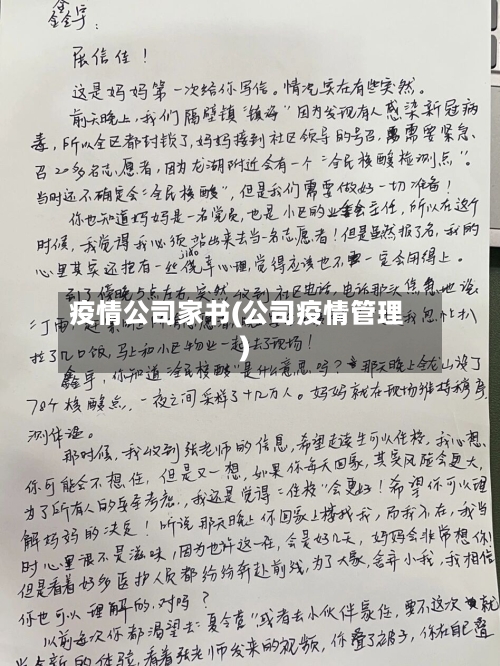 鑫宇:
展信佳!
这是妈妈第一次给你写信。情况实在有些突然。
前天晚上,我们隔壁镇"镇海"因为发现有人感染新冠病
毒,所以全区都封锁了,妈妈接到社区领导的号召,需要紧急
召20多名志愿者,因为龙湖附近会有一个"全民核酸检测点"。
当时还不确定会"全民核酸",但是我们需要做好一切准备!
你也知道妈妈是一名党员,也是小区的业委会主任,所以在这个
时候,我觉得我必须站出来去当一名志愿者!但是虽然报了名,我的
心里其实还抱有一丝侥幸心理,觉得应该也不一定会用得上。
jiǎo
到了傍晚5点左右,突然收到社区电话,电话那头焦急地说
疫情公司家书(公司疫情管理
)
扒了几口饭,马上和小区物业一起去了现场!
鑫宇,你知道"全民核酸"是什么意思吗?那天晚上
78个核酸点,一夜之间采样了十几万人。妈妈就在现场维持秩序,
测体温。
那时候,我收到张老师的信息,希望走读生可以住校,我心想,
你可能会不想住,但是又一想,如果你每天回家,其实风险会更大,
为了所有人的安全考虑,我还是觉得"住校"会更好!希望你可以理
解妈妈的决定!听说那天晚上你回家上楼找我,而我不在,我当
时心里很不是滋味,因为也许这一在,会是好几天,妈妈会非常想你
但是看着好多医护人员都纷纷奔赴前线,为了大家,舍弃小我,我相信
你也可以理解的,对吗?
以前每次你都渴望去"夏令营"或者去小伙伴家住,要不这次就
当全新的体验,看着张老师发来的视频,你叠了被子,你在自己叠